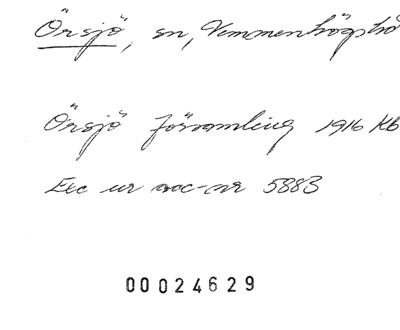 Örsjö, sn, Vemmenhögs hd
Örsjö församling 1916 Kb
Exc ur acc-nr 5883
00024629